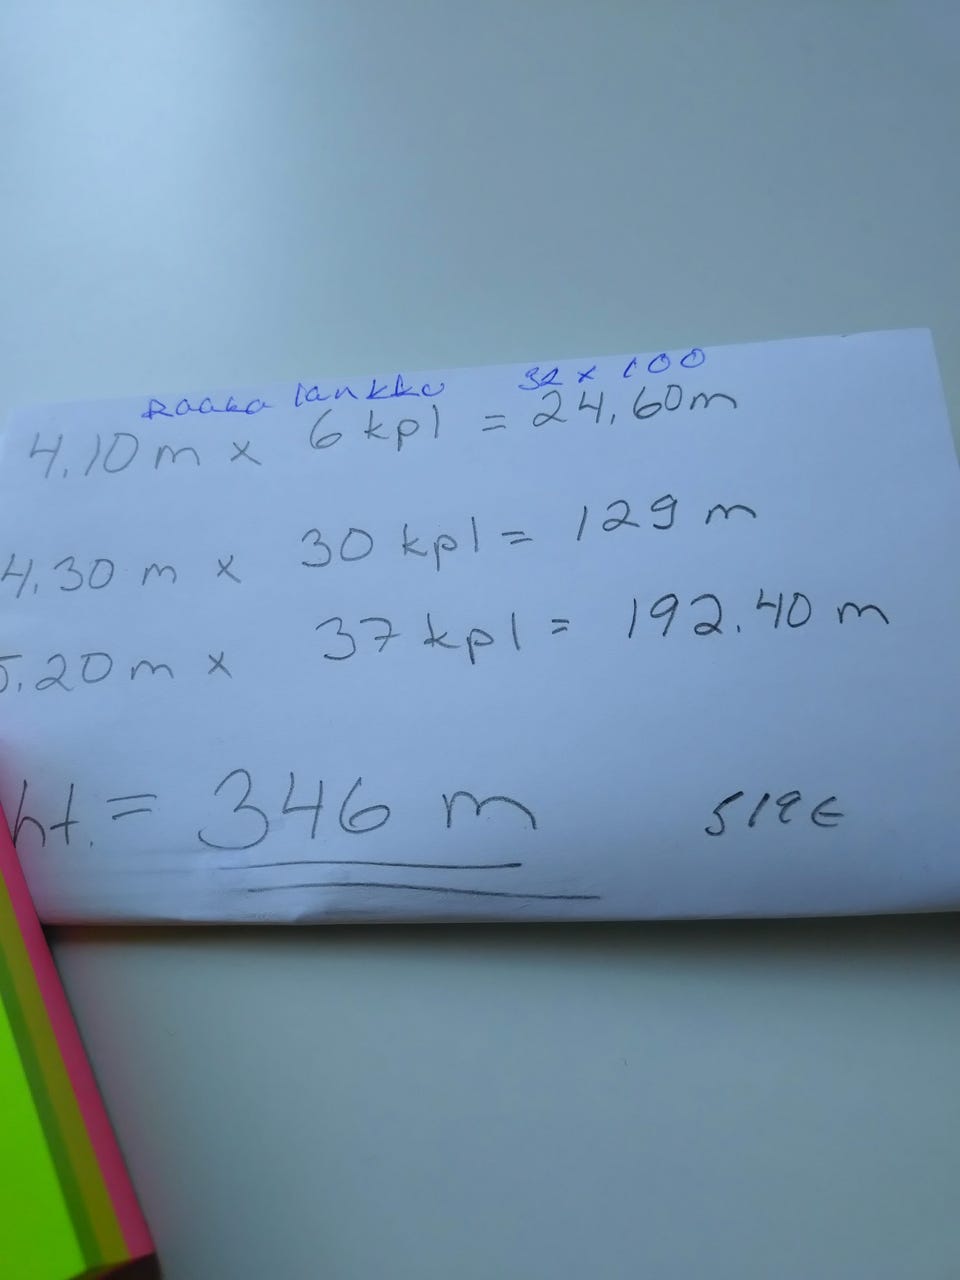 Raaka lankku 32 x 100
4,10 m x 6 kpl = 24,60 m
4,30 m x 30 kpl = 129 m
5,20 m x 37 kpl = 192.40 m
ht. = 346 m 519€